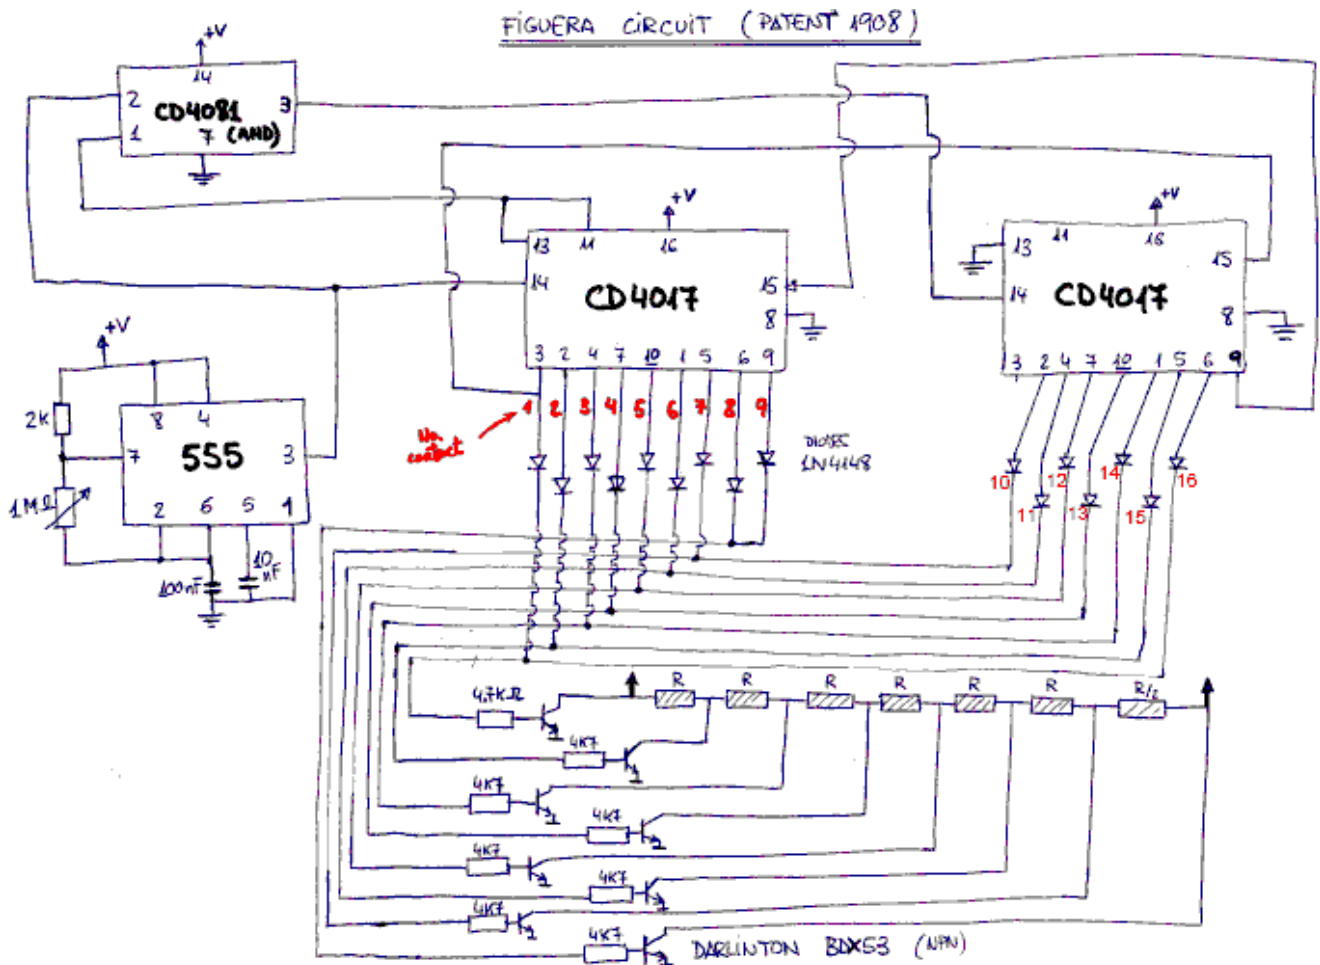 FIGUERA CIRCUIT (PATENT 1908)
+V
14
2
CD4081
3
1
7 (AND)
+V
13
11
16
14
CD4017
15
8
3 2 4 7 10 1 5 6 9
+V
13
11
16
15
14
CD4017
8
3 2 4 7 10 1 5 6 9
+V
2K
8
4
7
555
3
1MΩ
2
6
5
1
100nF
10
nF
1 2 3 4 5 6 7 8 9
No
contact
DIODES
1N4148
10
11
12
13
14
15
16
4,7KΩ
R
R
R
R
R
R
R/2
4K7
4K7
4K7
4K7
4K7
4K7
4K7
DARLINTON BDX53 (NPN)